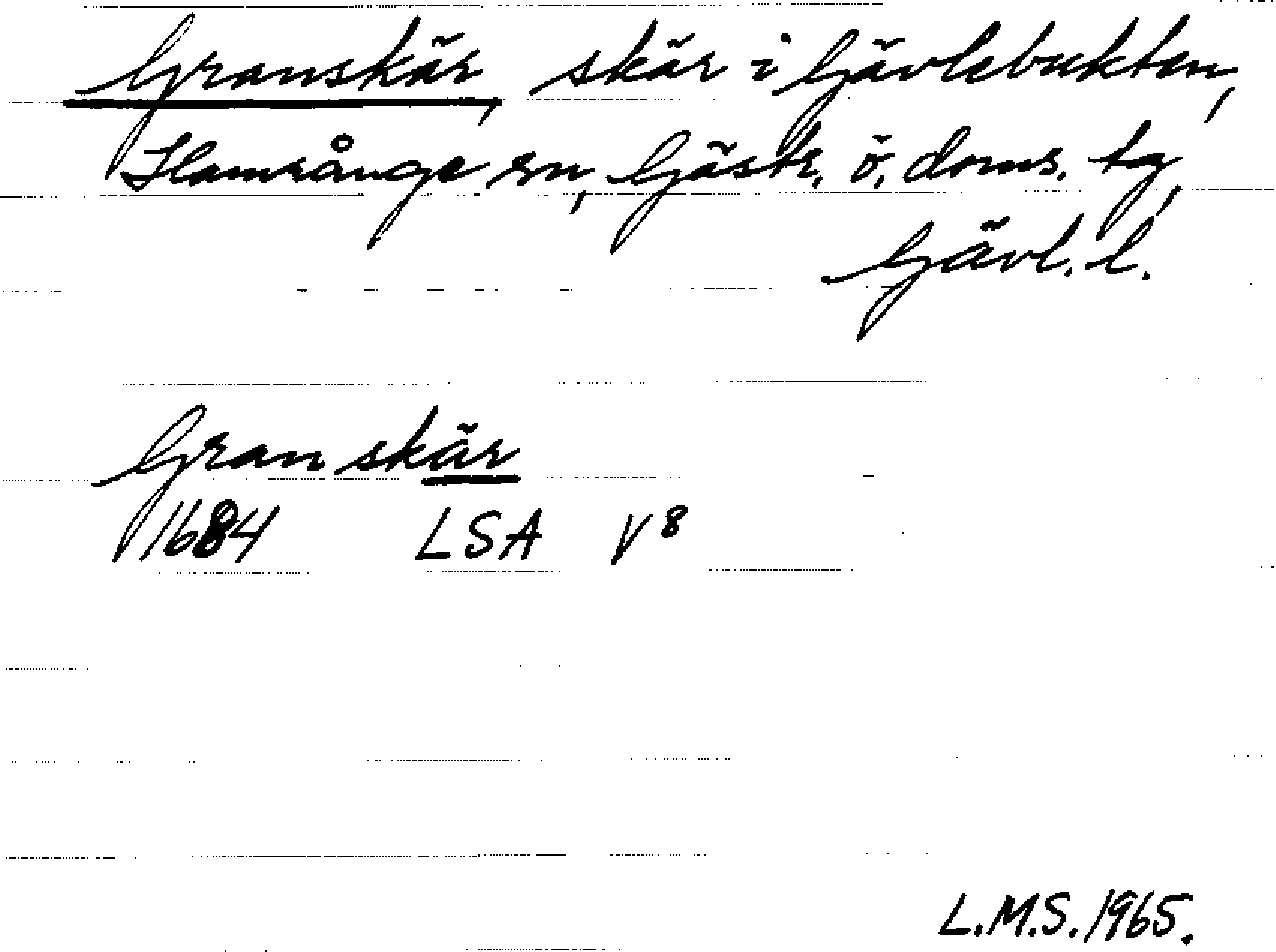 Granskär, skär i Gävlebukten,
Hamrånge sn, Gästr. ö. doms. tg,
Gävl. l.
Granskär
1684 LSA V8
L.M.S. 1965.